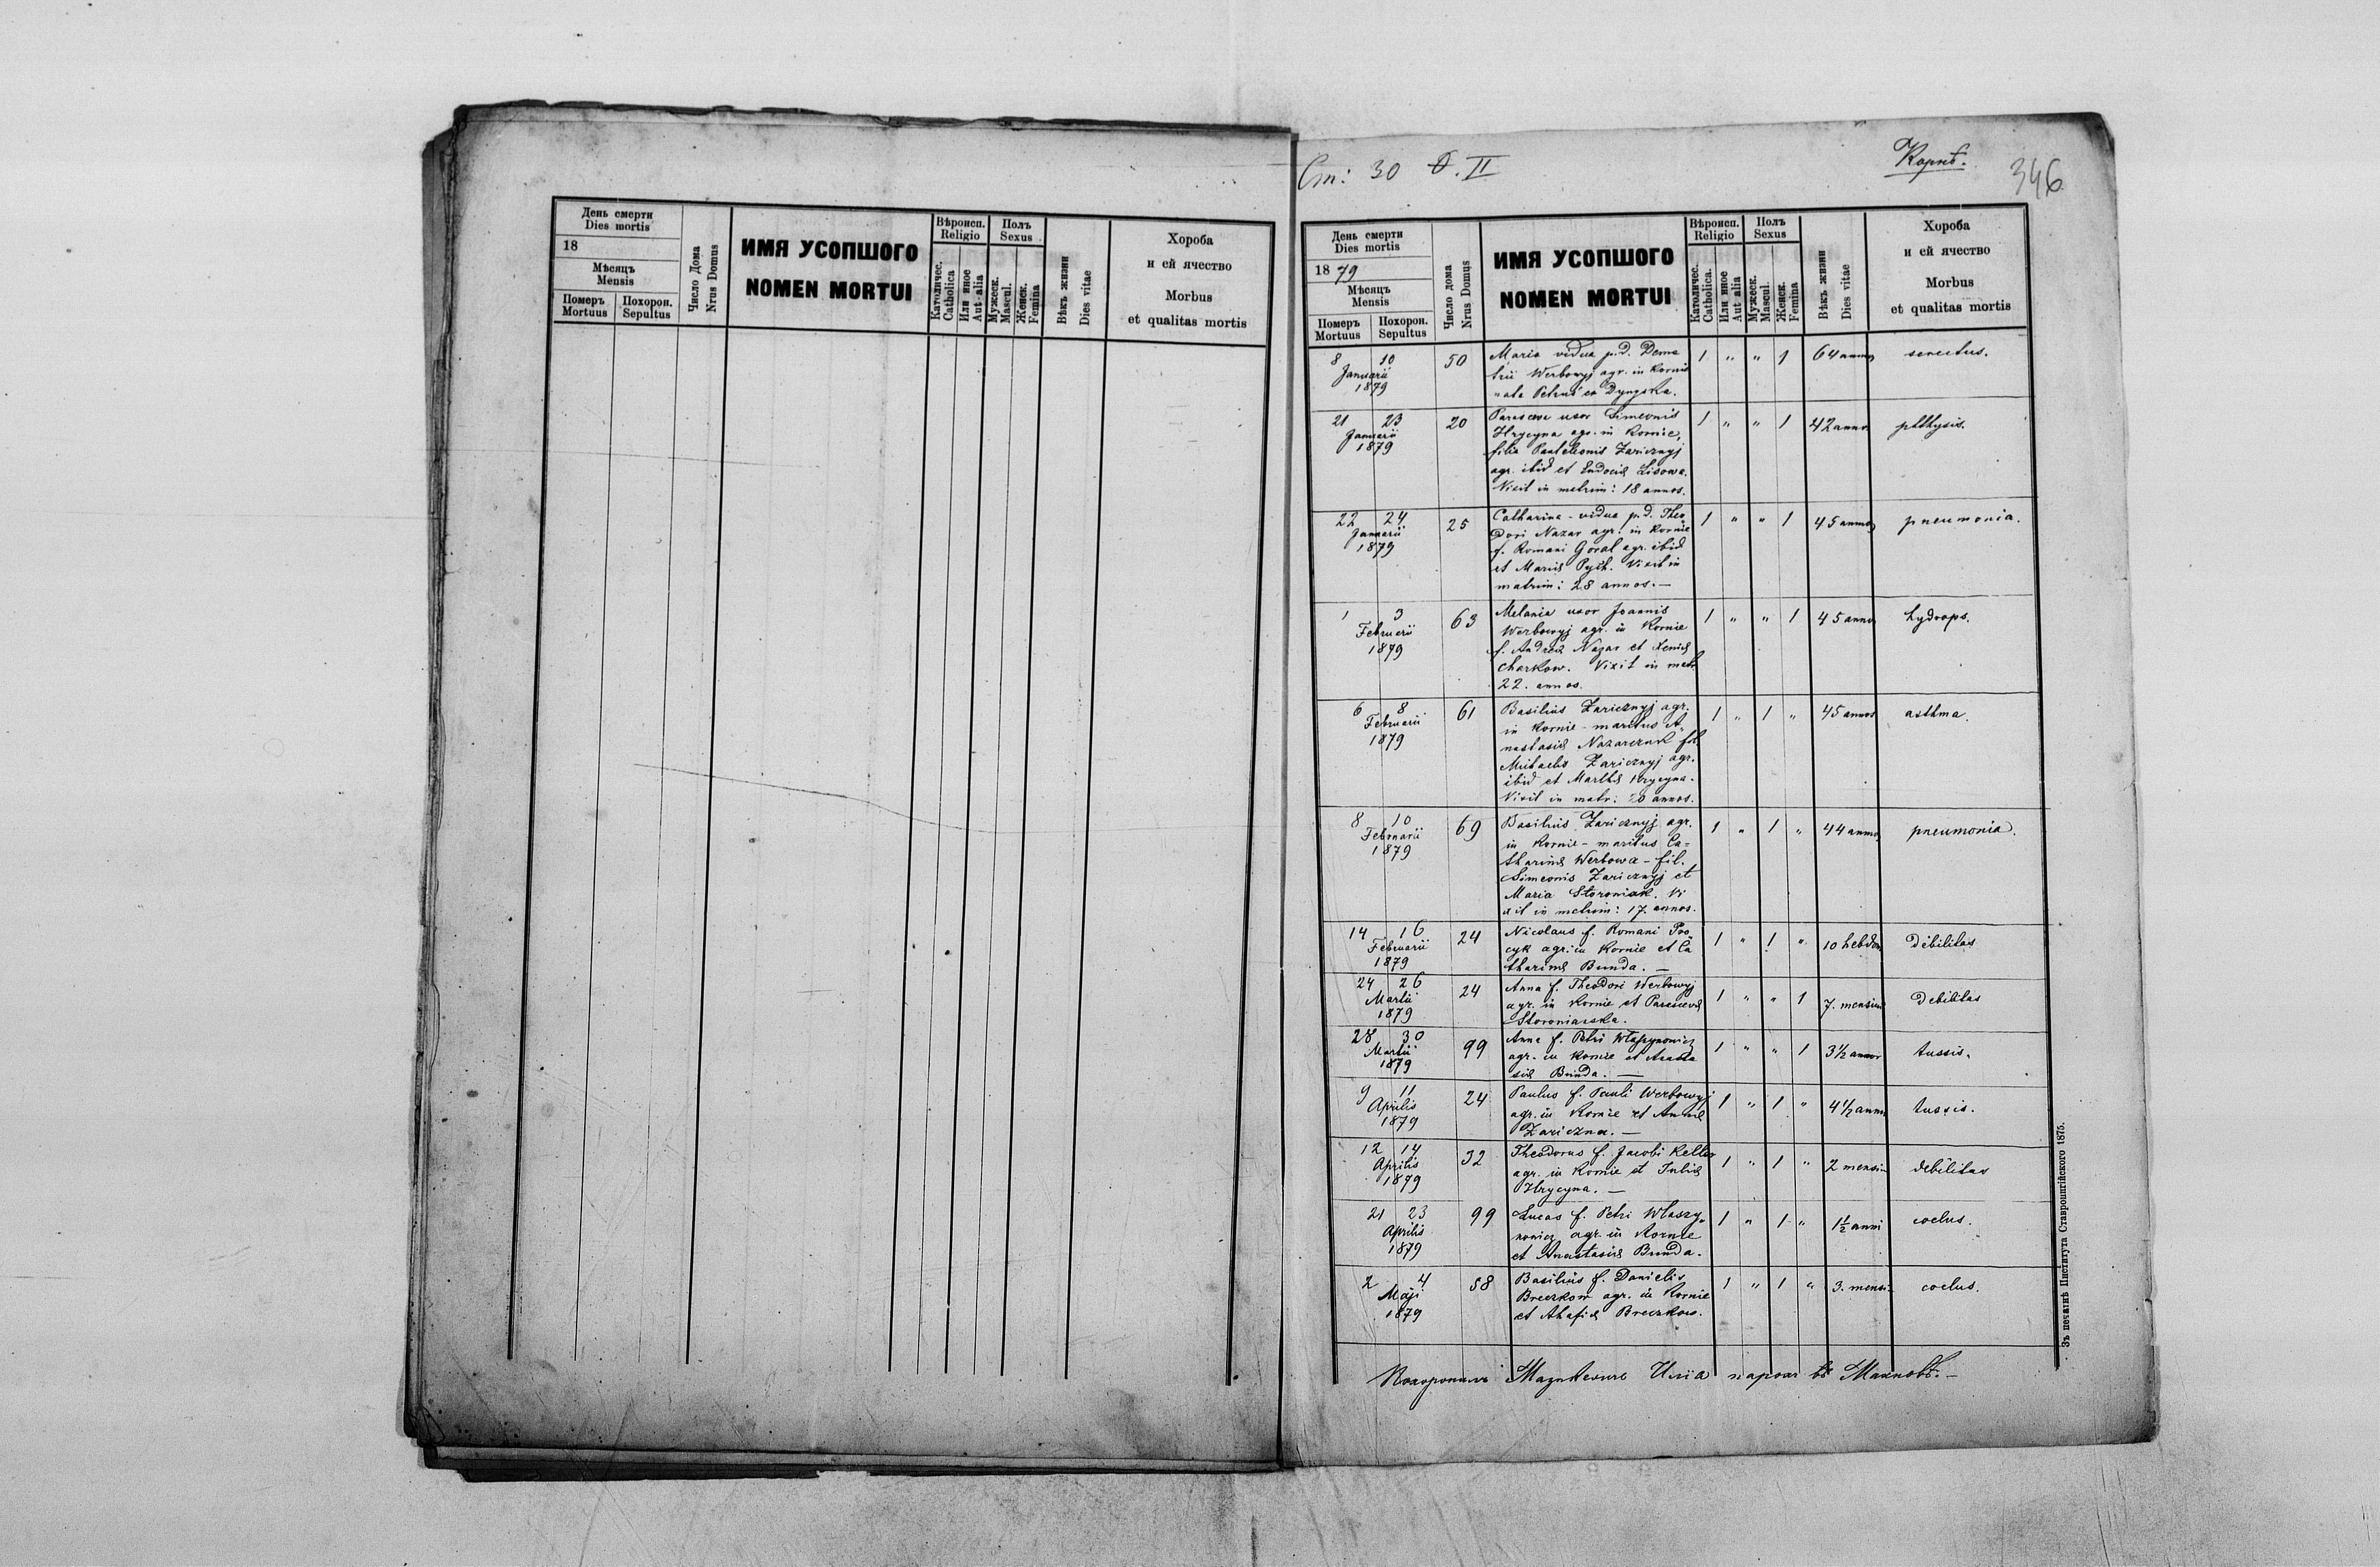 День смерти
Dies mortis
18
Мѣсяцъ
Mensis
Померъ
Mortuus
Похорон.
Sepultus
Число Дома
Nrus Domus
ИМЯ УСОПШОГО
NOMEN MORTUI
Вѣроисп.
Religio
Католичес.
Catholica
Или иное
Aut alia
Полъ
Sexus
Мужеск.
Mascul.
Женск.
Femina
Вѣкъ жизни
Dies vitae
Хороба
и ей ячество
Morbus
et qualitas mortis
Ст: 30 О. II
Корнѣ.
346
День смерти
Dies mortis
1879
Мѣсяцъ
Mensis
Померъ
Mortuus
Похорон.
Sepultus
Число дома
Nrus Domus
ИМЯ УСОПШОГО
NOMEN MORTUI
Вѣроисп.
Religio
Католичес.
Catholica.
Или иное
Aut alia
Полъ
Sexus
Мужеск.
Mascul.
Женск.
Femina
Вѣкъ жизни
Dies vitae
Хороба
и ей ячество
Morbus
et qualitas mortis
8 10 50 Maria vidua p. d. Deme 1 " " 1 64 annos senectus.
Januarii trii Werbowyj agr. in Kornie
1879 nata Petrus et Dyngoska.
21 23 20 Parasceva uxor Simeonis 1 " " 1 42 annos phthysis.
Januarii Hrycyna agr. in Kornie,
1879 filia Panteleonis Zaricznyj
agr. ibid et Eudociæ Lisowa.
Vixit in matrim: 18 annos.
22 24 25 Catharina - vidua p. d. Theo 1 " " 1 45 annos pneumonia.
Januarii dori Nazar agr. in Kornie
1879 f. Romani Goral agr. ibid
et Mariæ Pych. Vixit in
matrim: 28 annos. —
1 3 63 Melania uxor Joannis 1 " " 1 45 annos hydrops.
Februarii Werbowyj agr. in Kornie
1879 f. Andreæ Nazar et Xeniæ
Charkow. Vixit in matr
22. annos.
6 8 61 Basilius Zaricznyj agr. 1 " 1 " 45 annos asthma.
Februarii in Kornie - maritus A
1879 nastasiæ Nazarczuk fil.
Michaelis Zaricznyj agr.
ibid et Marthæ Hrycyna.
Vixit in matr: 20 annos.
8 10 69 Basilius Zaricznyj agr. 1 " 1 " 44 annos pneumonia.
Februarii in Kornie - maritus Ca=
1879 tharinæ Werbowa - fil.
Simeonis Zaricznyj et
Maria Storoniak. Vi
xit in matrim: 17. annos.
14 16 24 Nicolaus f. Romani Poo 1 " 1 " 10 hebdom debilitas
Februarii cyk agr. in Kornie et Ca
1879 tharinæ Bunda. —
24 26 24 Anna f. Theodori Werbowyj 1 " " 1 7. mensium debilitas
Martii agr. in Kornie et Parascevæ
1879 Storoniarska.
28 30 99 Anna f. Petri Własynowicz 1 " " 1 3½ annor tussis.
Martii agr. in Kornie et Anasta
1879 siæ Bunda. —
9 11 24 Paulus f. Pauli Werbowyj 1 " 1 " 4½ annor tussis.
Aprilis agr. in Kornie et Annæ
1879 Zariczna. —
12 14 32 Theodorus f. Jacobi Keller 1 " 1 " 2 mensium debilitas
Aprilis agr. in Kornie et Juliæ
1879 Hrycyna. —
21 23 99 Lucas f. Petri Właszy 1 " 1 " 1½ anni coelus.
Aprilis nowicz agr. in Kornie
1879 et Anastasiæ Bunda.
2 4 58 Basilius f. Danielis 1 " 1 " 3. mensi: coelus.
Maji Breczkow agr. in Kornie
1879 et Ahafiæ Breczkow.
Похоронилъ Илiа парохъ въ Махновѣ. —
Зъ печатнѣ Института Ставропигійского 1875.